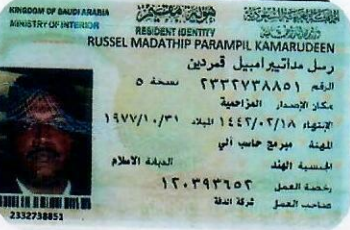 KINGDOM OF SAUDI ARABIA
MINISTRY OF INTERIOR
هوية مقيم
RESIDENT IDENTITY
RUSSEL MADATHIP PARAMPIL KAMARUDEEN
رسل مداتييرامبيل قمردين
الرقم ٢٣٣٢٧٣٨٨٥١ نسخة ٥
مكان الإصدار المزاحمية
الإنتهاء ١٤٤٢/٠٢/١٨ الميلاد ١٩٧٧/١٠/٣١
المهنة مبرمج حاسب آلي
الجنسية الهند الديانة الاسلام
رخصة العمل ١٢٠٣٩٣٦٥٢
صاحب العمل شركة الدفة
2332738851